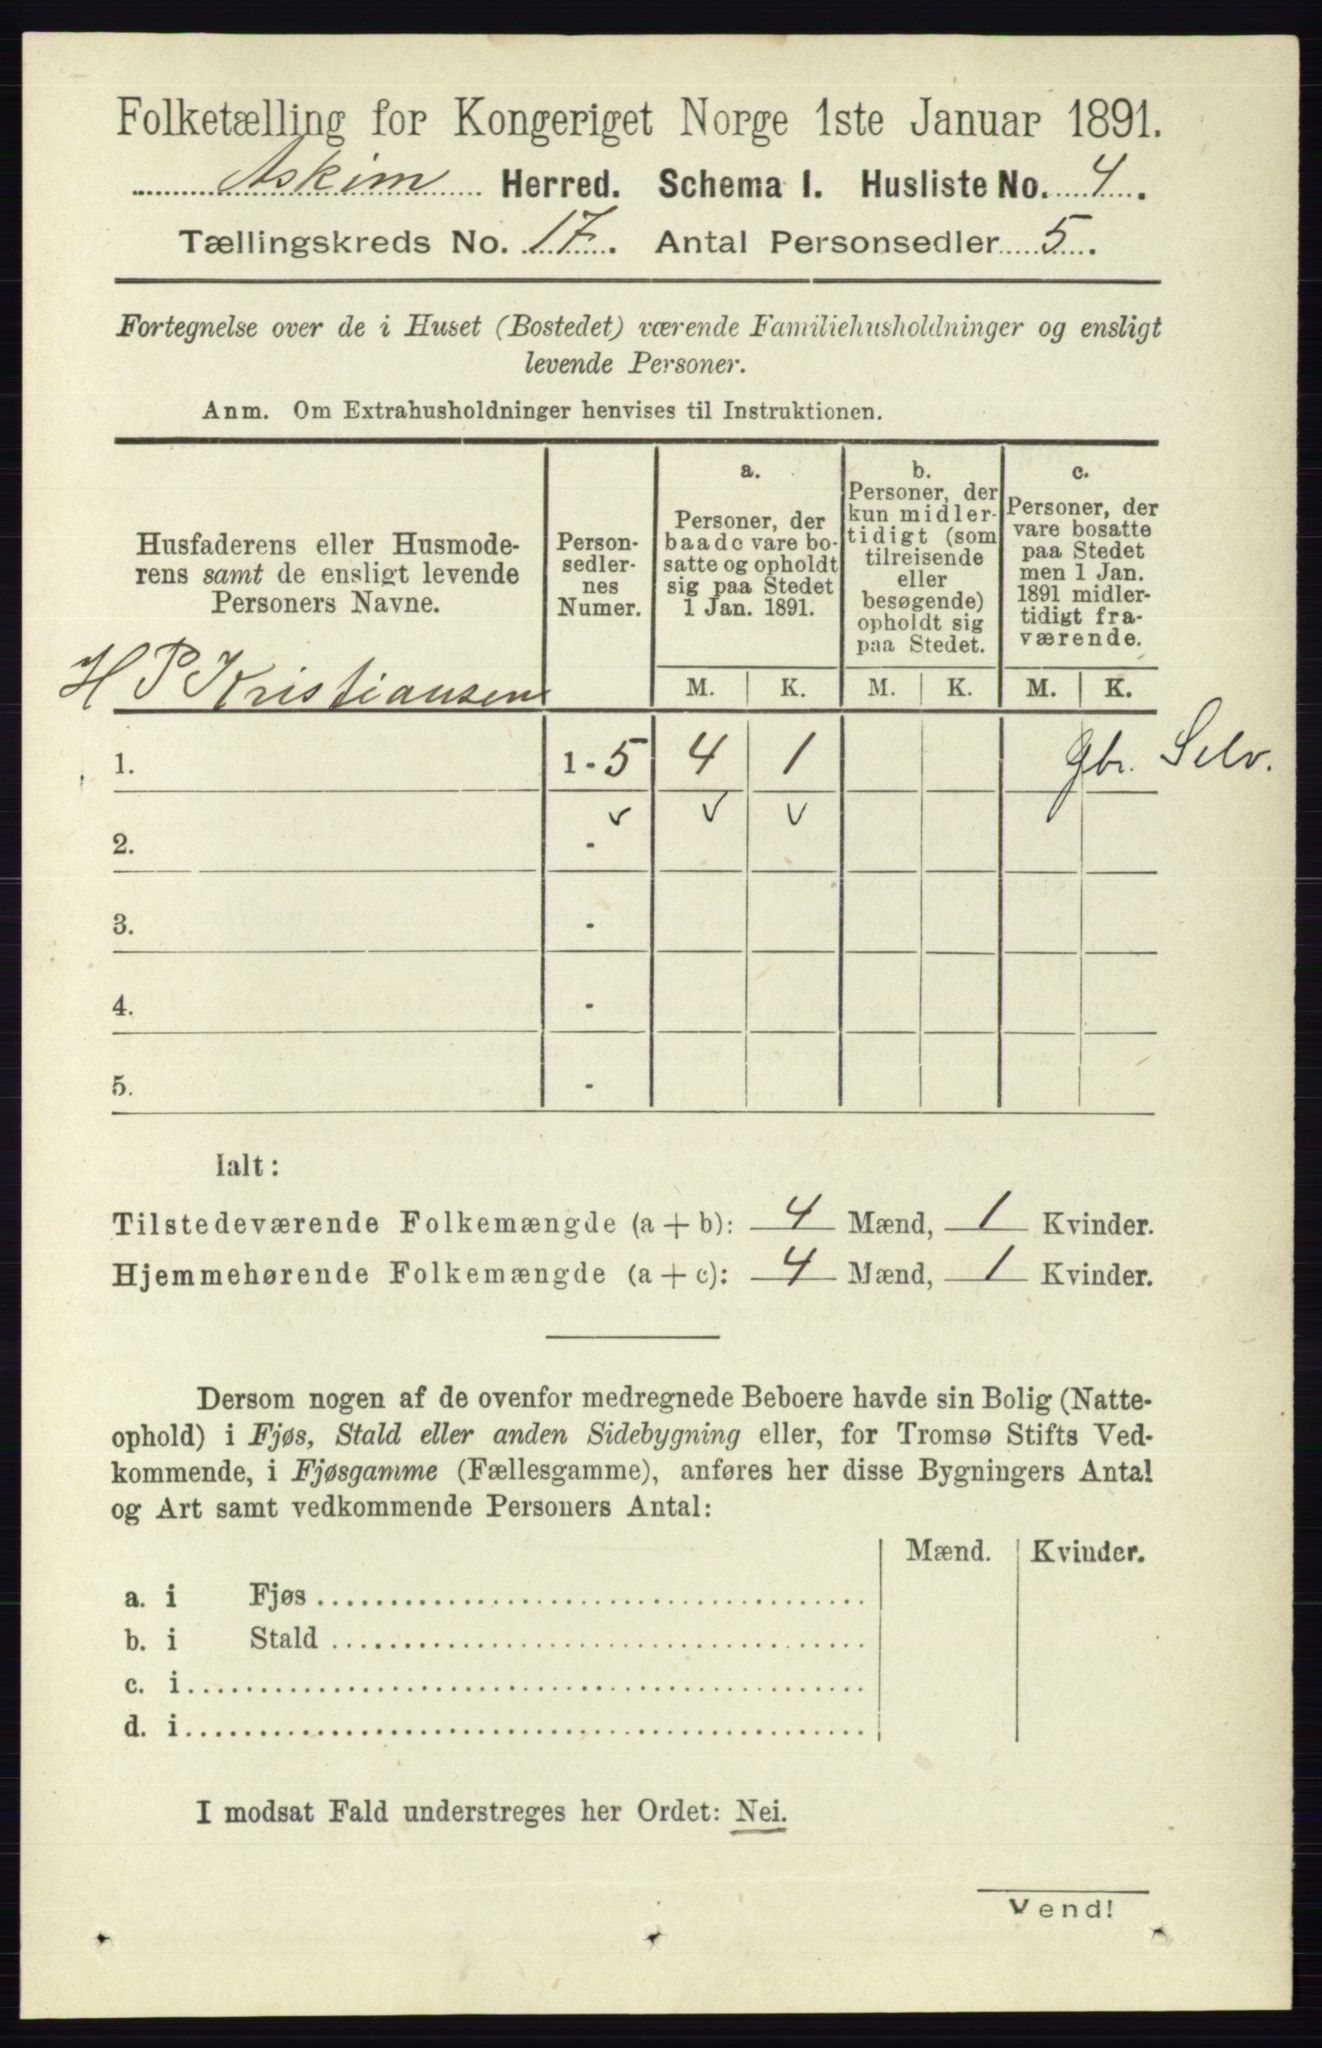 Folketælling for Kongeriget Norge 1ste Januar 1891.
Askim Herred. Schema I. Husliste No. 4.
Tællingskreds No. 17. Antal Personsedler 5.
Fortegnelse over de i Huset (Bostedet) værende Familiehusholdninger og ensligt
levende Personer.
Anm. Om Extrahusholdninger henvises til Instruktionen.
Husfaderens eller Husmode-
rens samt de ensligt levende
Personers Navne.
Person-
sedler-
nes
Numer.
a.
Personer, der
baade vare bo-
satte og opholdt
sig paa Stedet
1 Jan. 1891.
b.
Personer, der
kun midler-
tidigt (som
tilreisende
eller
besøgende)
opholdt sig
paa Stedet.
c.
Personer, der
vare bosatte
paa Stedet
men 1 Jan.
1891 midler-
tidigt fra-
værende.
M. K. M. K. M. K.
H P Kristiansen
1. 1 - 5 4 1 gbr. Selv.
2. -
3. -
4. -
5. -
Ialt:
Tilstedeværende Folkemængde (a + b): 4 Mænd, 1 Kvinder.
Hjemmehørende Folkemængde (a + c): 4 Mænd, 1 Kvinder.
Dersom nogen af de ovenfor medregnede Beboere havde sin Bolig (Natte-
ophold) i Fjøs, Stald eller anden Sidebygning eller, for Tromsø Stifts Ved-
kommende, i Fjøsgamme (Fællesgamme), anføres her disse Bygningers Antal
og Art samt vedkommende Personers Antal:
Mænd. Kvinder.
a. i Fjøs
b. i Stald
c. i
d. i
I modsat Fald understreges her Ordet: Nei.
Vend!